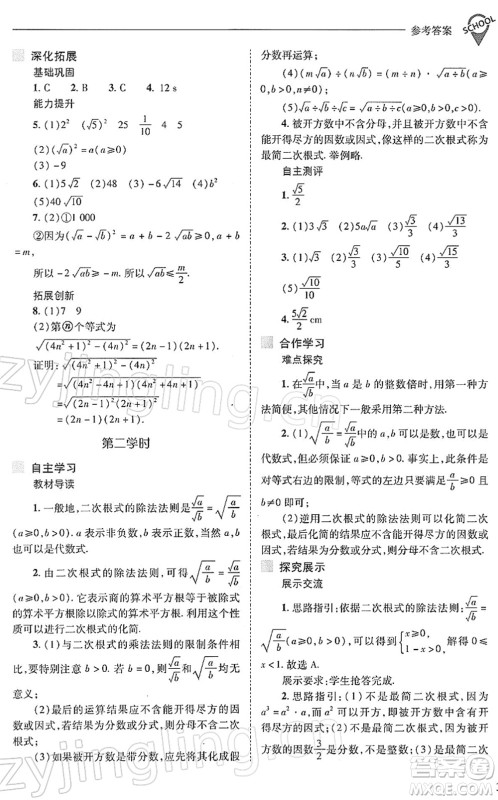 参考答案
SCHOOL
深化拓展
基础巩固
1. C 2. B 4. C 4. 12 s
能力提升
5. (1)2² (√5)² 25 1/10 4 5
(2)(√a)² = a(a≥0)
(3) -9
6. (1)5√2 (2)48 (3) -6√2 (4)b²
(5)40√10
7. (2)①1 000
②因为(√a - √b)² = a + b - 2√ab≥0, a + b
= m,
所以 -2√ab≥ - m, 所以√ab≤m/2.
拓展创新
8. (1)7 9
(2)第ⓝ个等式为
√((4n² + 1)² - (4n)²) = (2n - 1)(2n + 1)
证明: √((4n² + 1)² - (4n)²)
= √((4n² - 4n + 1)(4n² + 4n + 1))
= √((2n - 1)²(2n + 1)²)
= (2n - 1)(2n + 1)
第二学时
自主学习
教材导读
1. 一般地, 二次根式的除法法则是√a/√b = √(a/b)
(a≥0, b>0). a 表示非负数, b 表示正数, 当然 a,
b 也可以是代数式.
2. 由二次根式的除法法则, 可得√(a/b) = √a/√b
(a≥0, b>0). 它表示商的算术平方根等于被除
式的算术平方根除以除式的算术平方根. 利用它
可以进行二次根式的化简.
3. (1)与二次根式的乘法法则的限制条件相
比, 这里要注意 b>0. 若 b = 0, 则√a/√b和√(a/b)均没有
意义;
(2)最后的运算结果应为不含能开得尽方的
因数或因式, 若结果为分数或分式, 分母不含根号;
(3)如果被开方数是带分数, 应先将其化成假
分数再运算;
(4)(m√a)÷(n√b) = (m÷n)·(√a÷√b)(a≥0,
b>0, n≠0);
(5)√a÷√b÷√c = √(a÷b÷c)(a≥0, b>0, c>0).
4. 被开方数中不含分母, 并且被开方数中不含
能开得尽方的因数或因式的二次根式称为
最简二次根式. 举例略.
自主测评
1. √5/2
2. (1)3√3 (2)5a√a (3)√3/3 (4)√13/3
3. (1)√3/3 (2)√10/5 (3)√3/3 (4)√15/3
(5)√10/10
4. 5√2/2 cm
合作学习
难点探究
1. 在√a/√b中, 当 a 是 b 的整数倍时, 用第一种方
法简便, 否则用第二种方法.
2. (1)√(a/b) = √a/√b中的 a, b 可以是数, 也可以是
代数式, 但必须保证 a≥0, b>0. 事实上, 公式是
对等式右边的限制, 等式的左边只要满足a/b≥0 且
b≠0即可;
(2)逆用二次根式的除法法则可以化简二次
根式, 最后化简结果应为不含能开得尽方的因数或因
式, 若结果为分数或分式, 分母不含根号.
探究展示
展示交流
1. 思路指引: 依题意, 可以得到{x≥0, 1 - x>0, 得 0≤
x<1. 故选 A.
展示要求: 学生抢答完成.
2. 思路指引: (1)不是最简二次根式, 因为
a³ = a²·a, a² 开得尽方. (2)不是最简二次根式, 因
为被开方数是分数3/2形式. (3)是最简二次